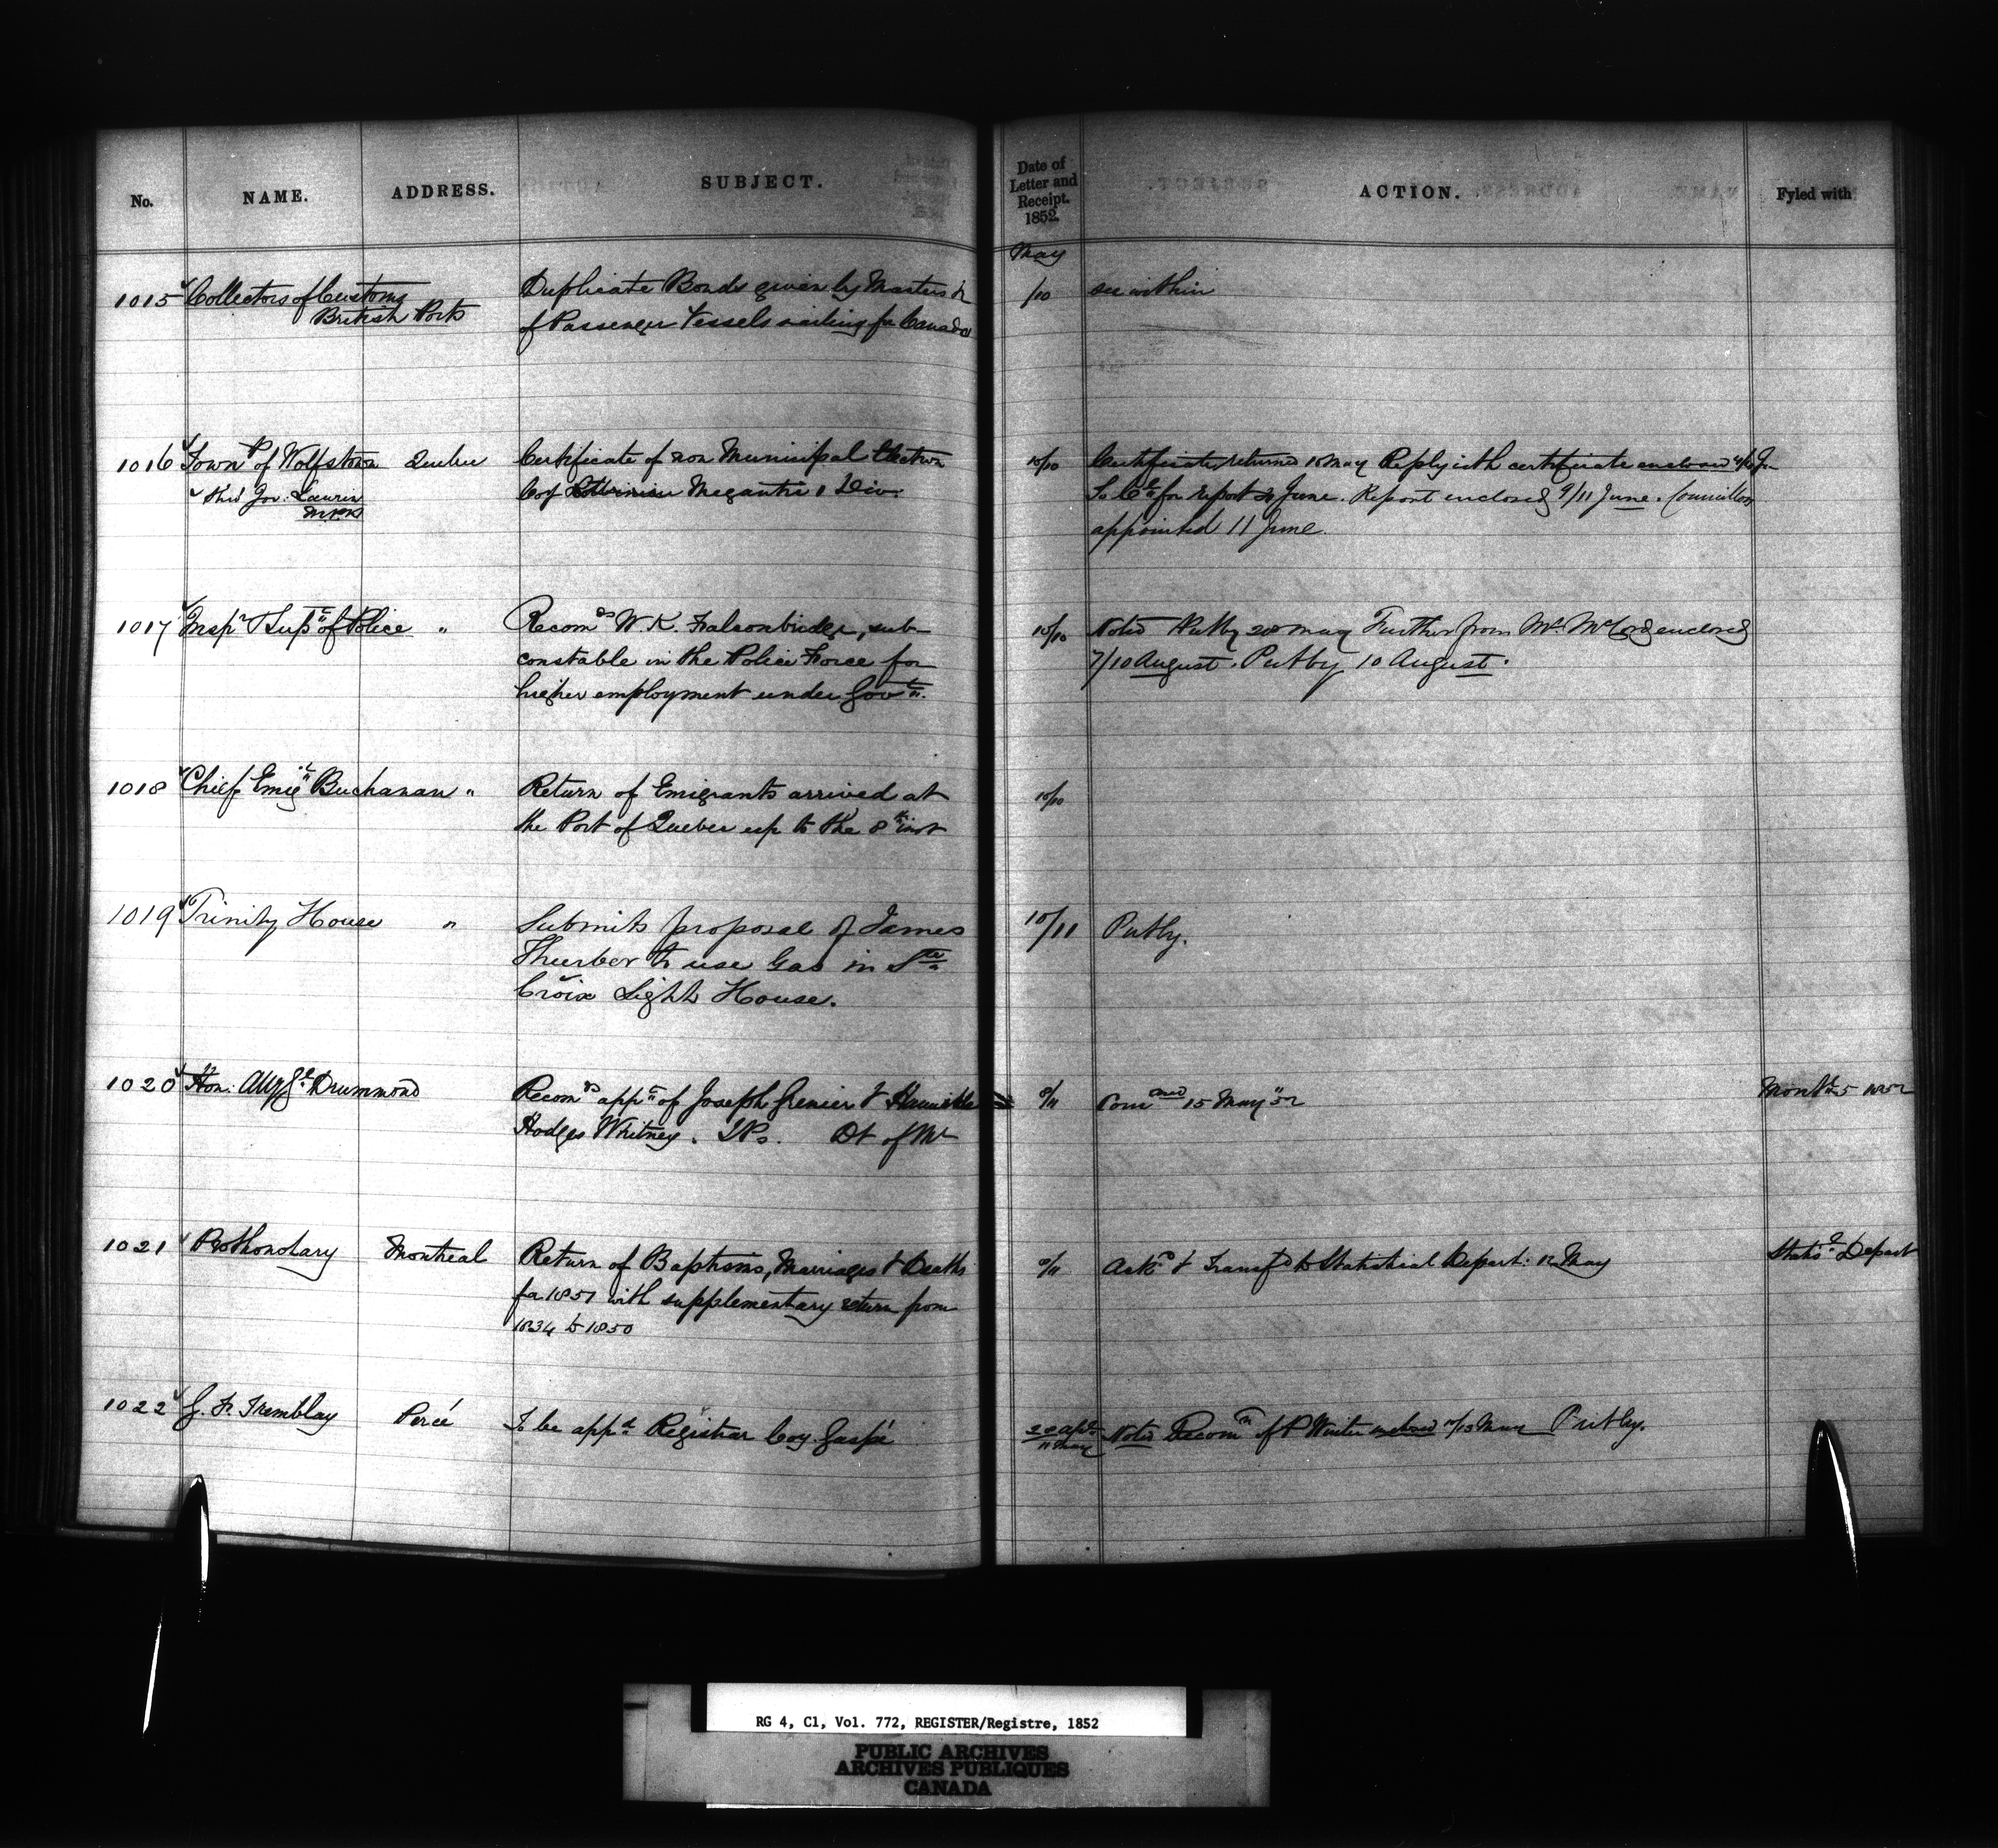 No. NAME. ADDRESS. SUBJECT. Date of Letter and Receipt. 1852. ACTION. Fyled with
May
1015 Collectors of Customs Duplicate Bonds given by Masters &c /10 see within
British Ports of Passenger Vessels sailing for Canada
1016 Townp of Wolfstown Quebec Certificate of non Municipal Election 10/10 Certificate returned 15 May Reply with certificate enclosed
Thro' Jos: Laurin Coy Lotbinière Megantic 1 Div. for report June. Report enclosed 9/11 June. Councillors
M.P.P. appointed 11 June.
1017 Inspr & Supt of Police " Recomds W. K. Falconbridge, sub- 10/10 Noted Putby 20 May Further from Mr. McCord enclosed
constable in the Police Force for 7/10 August. Putby 10 August.
higher employment under Govt.
1018 Chief Emigt Buchanan " Return of Emigrants arrived at 10/10
the Port of Quebec up to the 8th inst
1019 Trinity House " Submits proposal of James 10/11 Putby.
Thurber to use Gas in Ste
Croix Light House.
1020 Hon: Atty Gl Drummond Recomds appt of Joseph Grenier & Hannibal Commed 15 May 52
Hodges Whitney. JPs. Dt of Ml
1021 Prothonotary Montreal Return of Baptisms, Marriages & Deaths Ackd & Transfd to Statistical Depart: 12 May Depart
for 1851 with supplementary return from
1834 to 1850
1022 G. F. Tremblay Percé To be appd Registrar Coy Gaspé 11 May Noted Recomn of P Winter enclosed /13 May Putby.
RG 4, C1, Vol. 772, REGISTER/Registre, 1852
PUBLIC ARCHIVES
ARCHIVES PUBLIQUES
CANADA